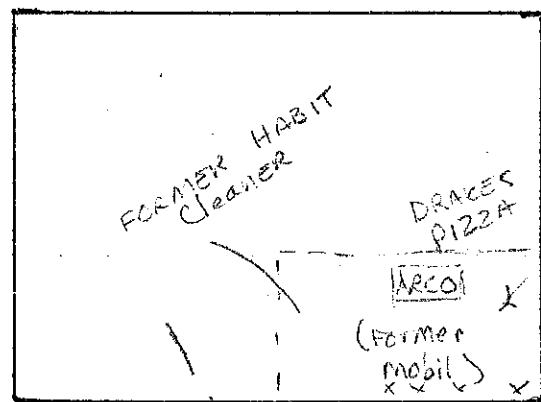 FORMER HABIT
Cleaner
DRAKES
PIZZA
ARCO
(Former
mobil)